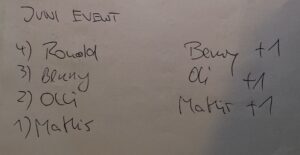 JUNI EVENT
4) Ronald Benny +1
3) Benny Oli +1
2) Olli Mathis +1
1) Mathis